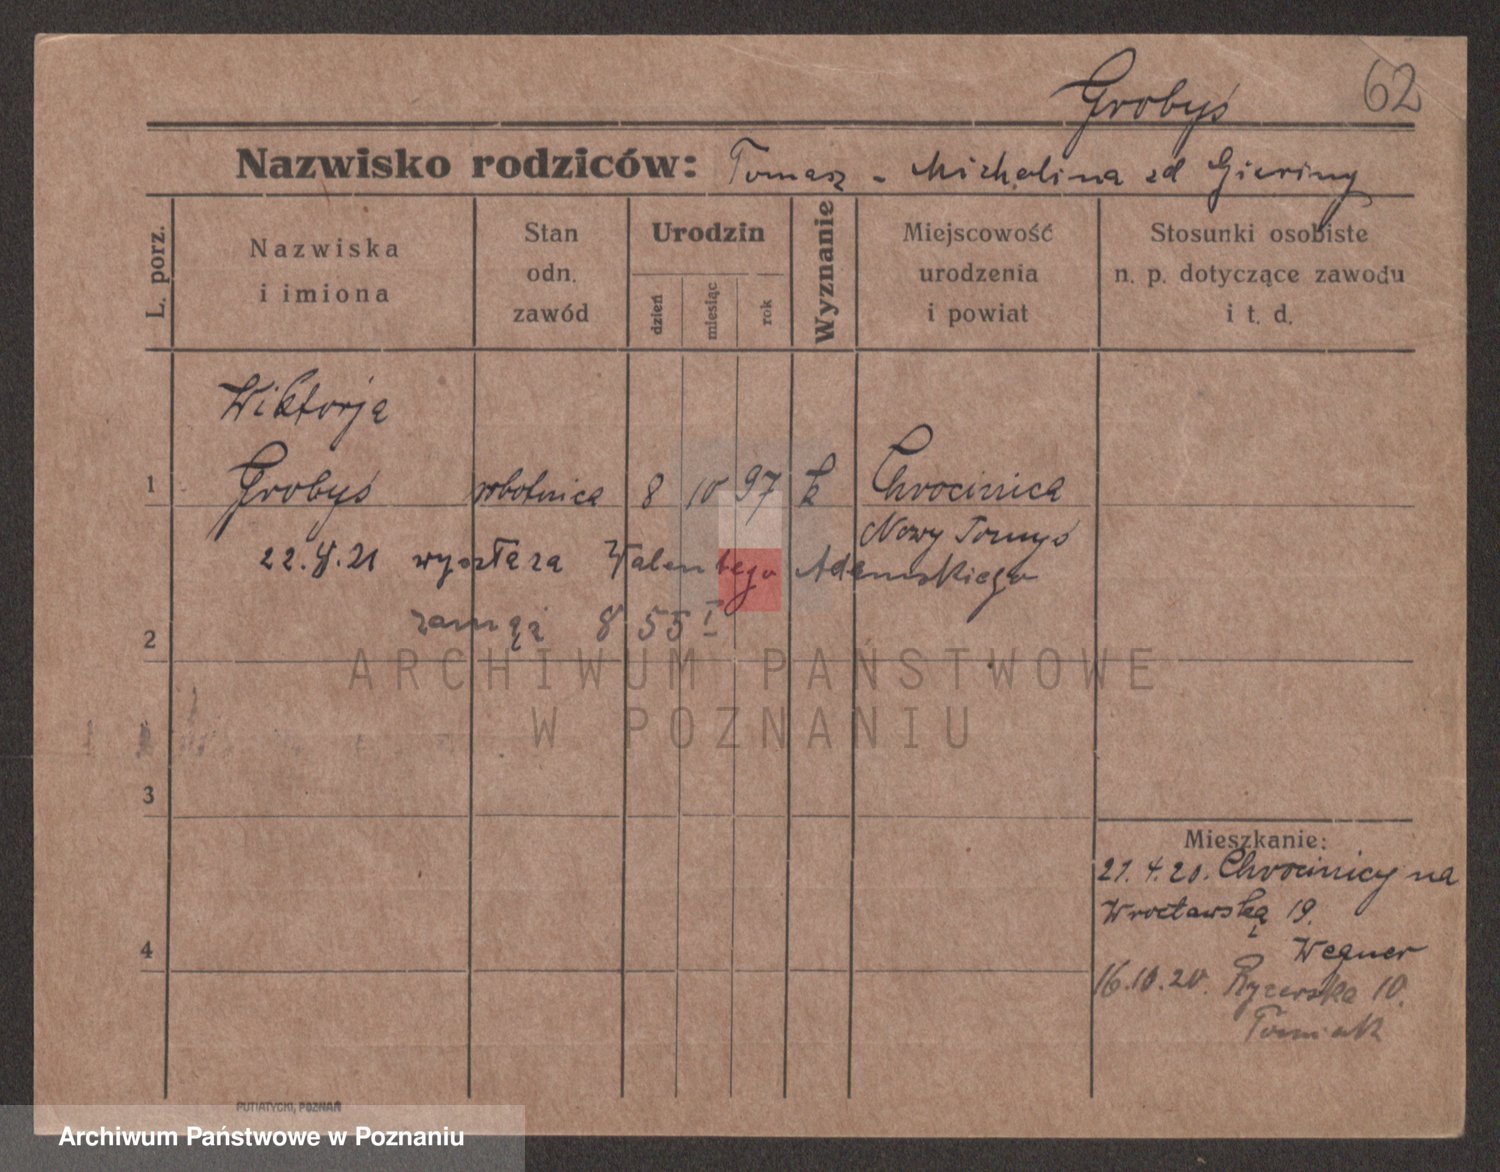 Grobyś 62
Nazwisko rodziców: Tomasz - Michalina zd
L. porz.
Nazwiska
i imiona
Stan
odn.
zawód
Urodzin
dzień
miesiąc
rok
Wyznanie
Miejscowość
urodzenia
i powiat
Stosunki osobiste
n. p. dotyczące zawodu
i t. d.
Wiktorja
1 Grobyś robotnica 8 10 97 k Chrocinica
Nowy Tomyś
22. 21 wyszła za Walentego Adamskiego
2 zamąż 8 55 I
ARCHIWUM PAŃSTWOWE
W POZNANIU
3
Mieszkanie:
21.4.20. Chrocinicy na
Wrocławską 19.
4 Wegner
16.10.20. Rycerska 10.
Tomiak
PUTIATYCKI, POZNAŃ
Archiwum Państwowe w Poznaniu